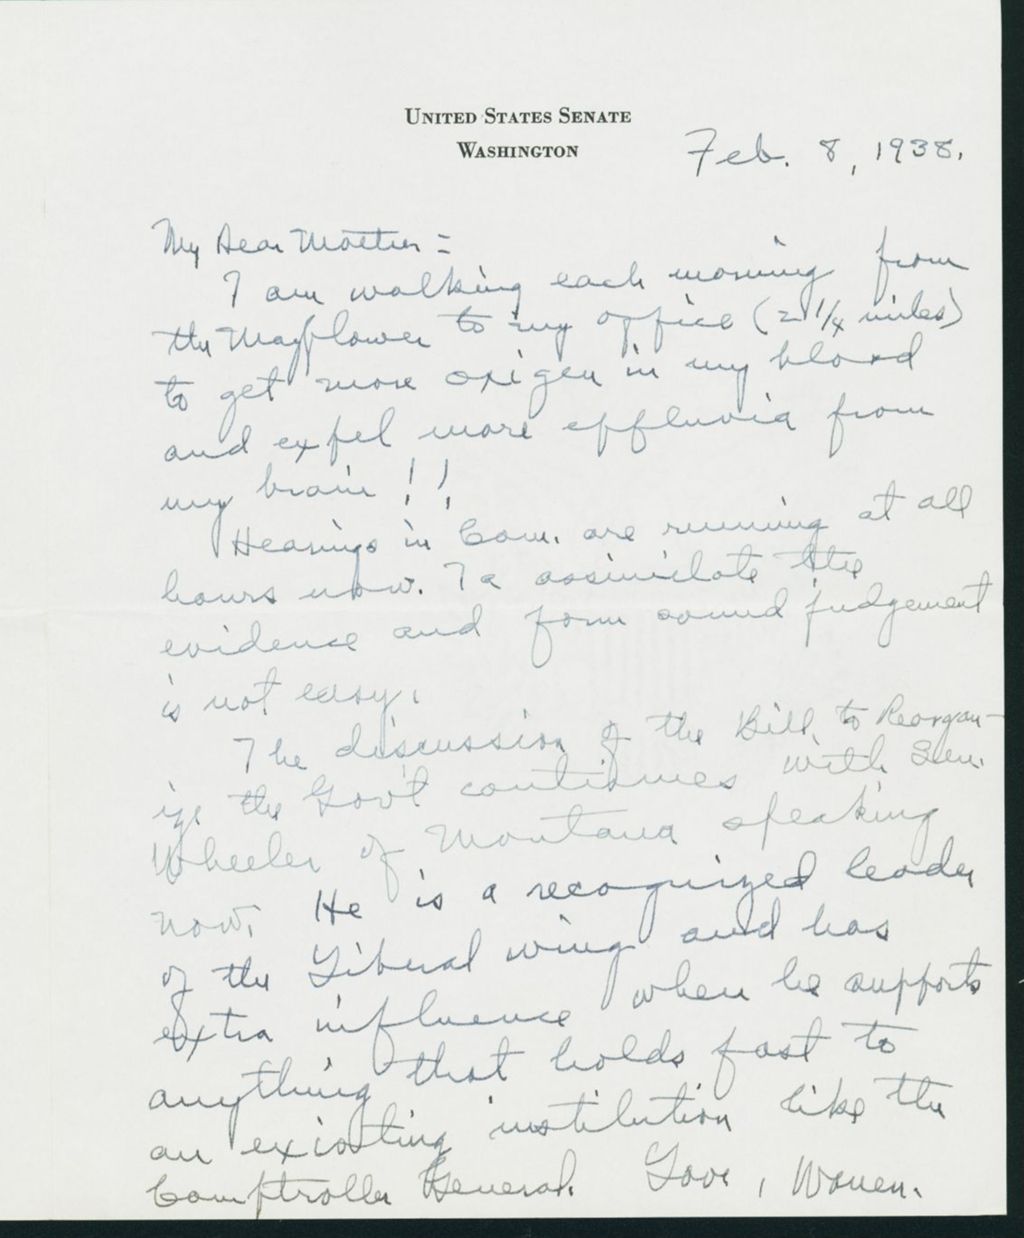 UNITED STATES SENATE
WASHINGTON
Feb. 8, 1938.
My Dear Mother =
I am walking each morning from
the Mayflower to my office (2 1/4 miles)
to get more oxigen in my blood
and expel more effluvia from
my brain!!
Hearings in Com. are running at all
hours now. To assimilate the
evidence and form sound judgement
is not easy.
The discussion of the Bill to Reorgan-
ize the Gov't continues with Sen.
Wheeler of Montana speaking
now. He is a recognized leader
of the Liberal wing and has
extra influence when he supports
anything that holds fast to
an existing institution like the
Comptroller General. Love, Warren.